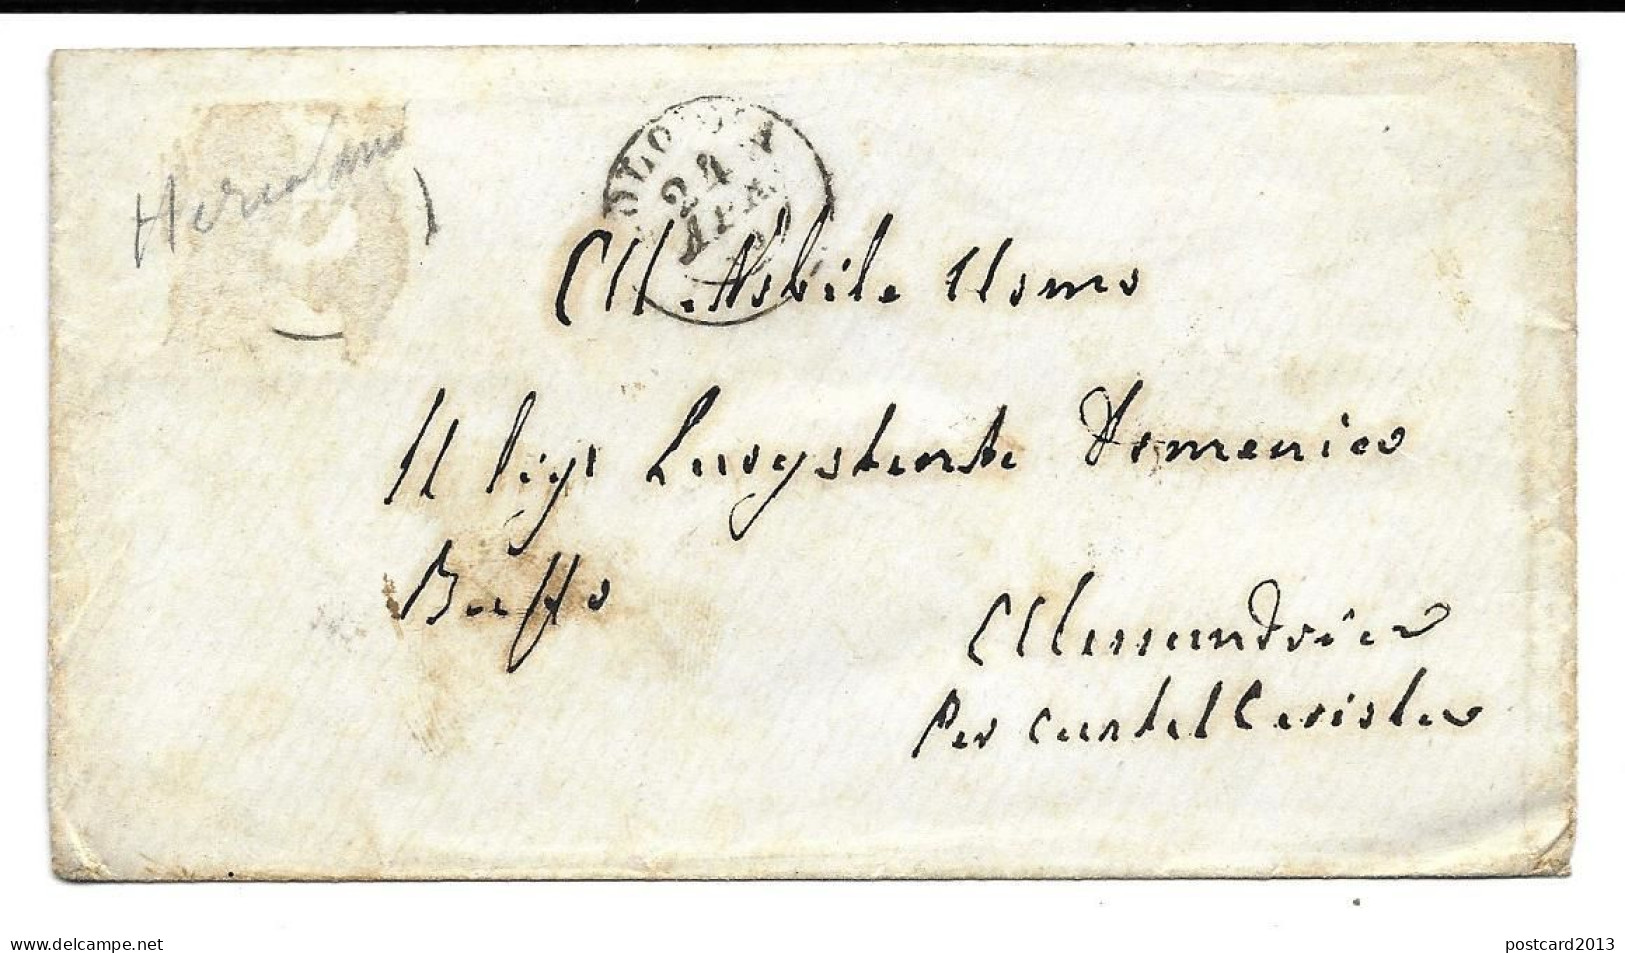 BOLOGNA
24
APR
All. Nobile Uomo
Il Sigr Domenico
Buffo
Alessandria
Per Castel Ceriolo
www.delcampe.net
postcard2013